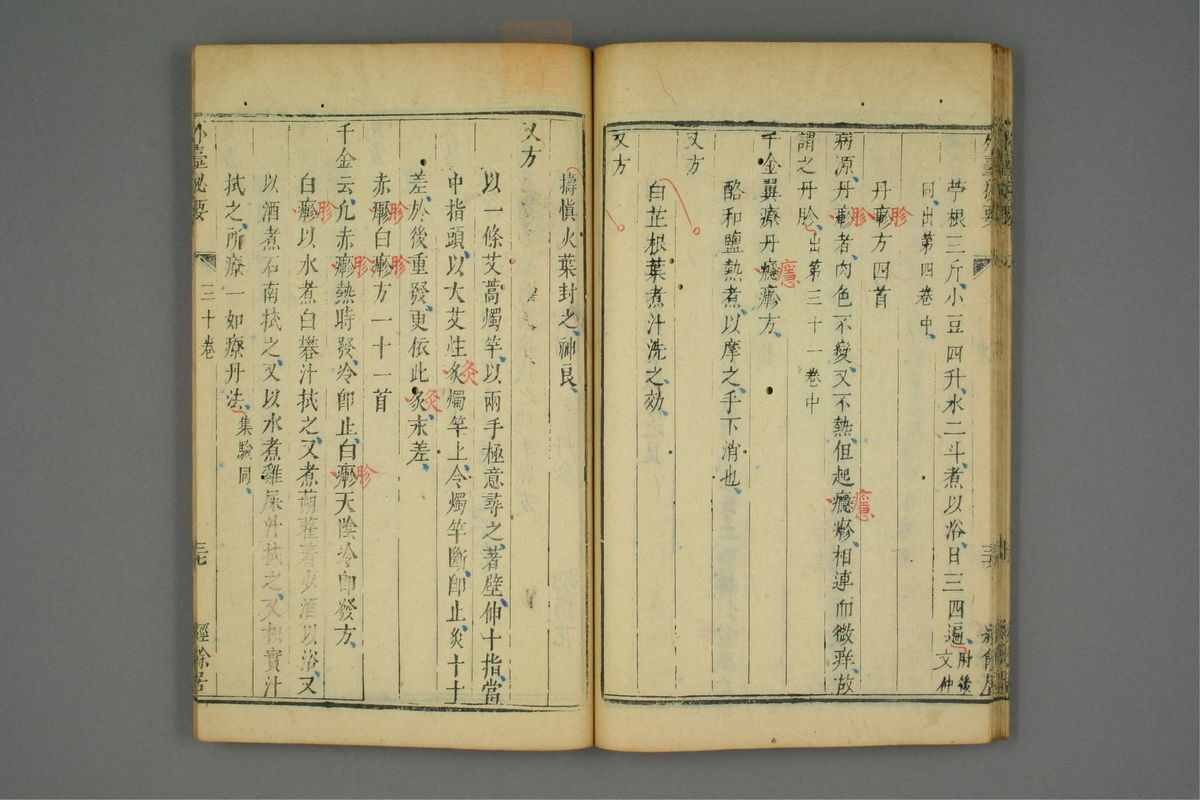 苧根三斤小豆四升水二斗煮以浴日三四遍肘後文仲
同出第四卷中
丹𤺋方四首
胗
病源丹𤺋者肉色不變又不熱但起癮𤺋相連而微痒故
胗
癮
謂之丹胗出第三十一卷中
千金翼療丹癮𤺋方
癮
酪和鹽熱煮以摩之手下消也
又方
白芷根葉煮汁洗之効
又方
擣慎火葉封之神良
又方
以一條艾蒿燭竿以兩手極意尋之著壁伸十指當
中指頭以大艾炷灸燭竿上令燭竿斷即止灸十十
灸
差於後重發更依此灸永差
灸
赤𤺋白𤺋方一十一首
胗
胗
千金云凡赤𤺋熱時發冷即止白𤺋天陰冷即發方
胗
胗
白𤺋以水煮白礬汁拭之又煮蒴藋著少酒以浴又
胗
以酒煮石南拭之又以水煮雞屎汁拭之又枳實汁
拭之所療一如療丹法集驗同
外臺秘要
三十卷
三七
經餘居